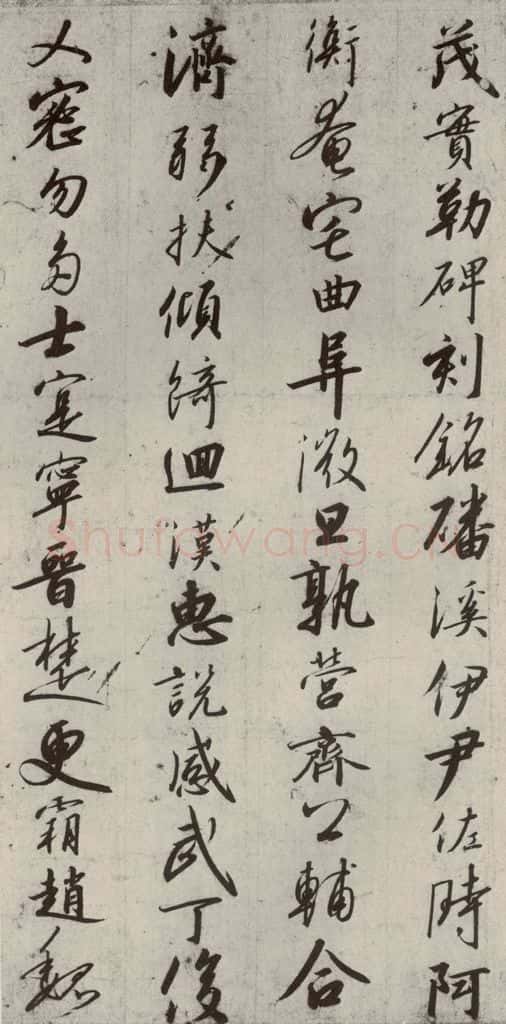 茂實勒碑刻銘磻溪伊尹佐時阿
衡奄宅曲阜微旦孰營齊公輔合
濟弱扶傾綺迴漢惠說感武丁俊
乂密勿多士寔寧晉楚更霸趙魏
Shufawang.CN